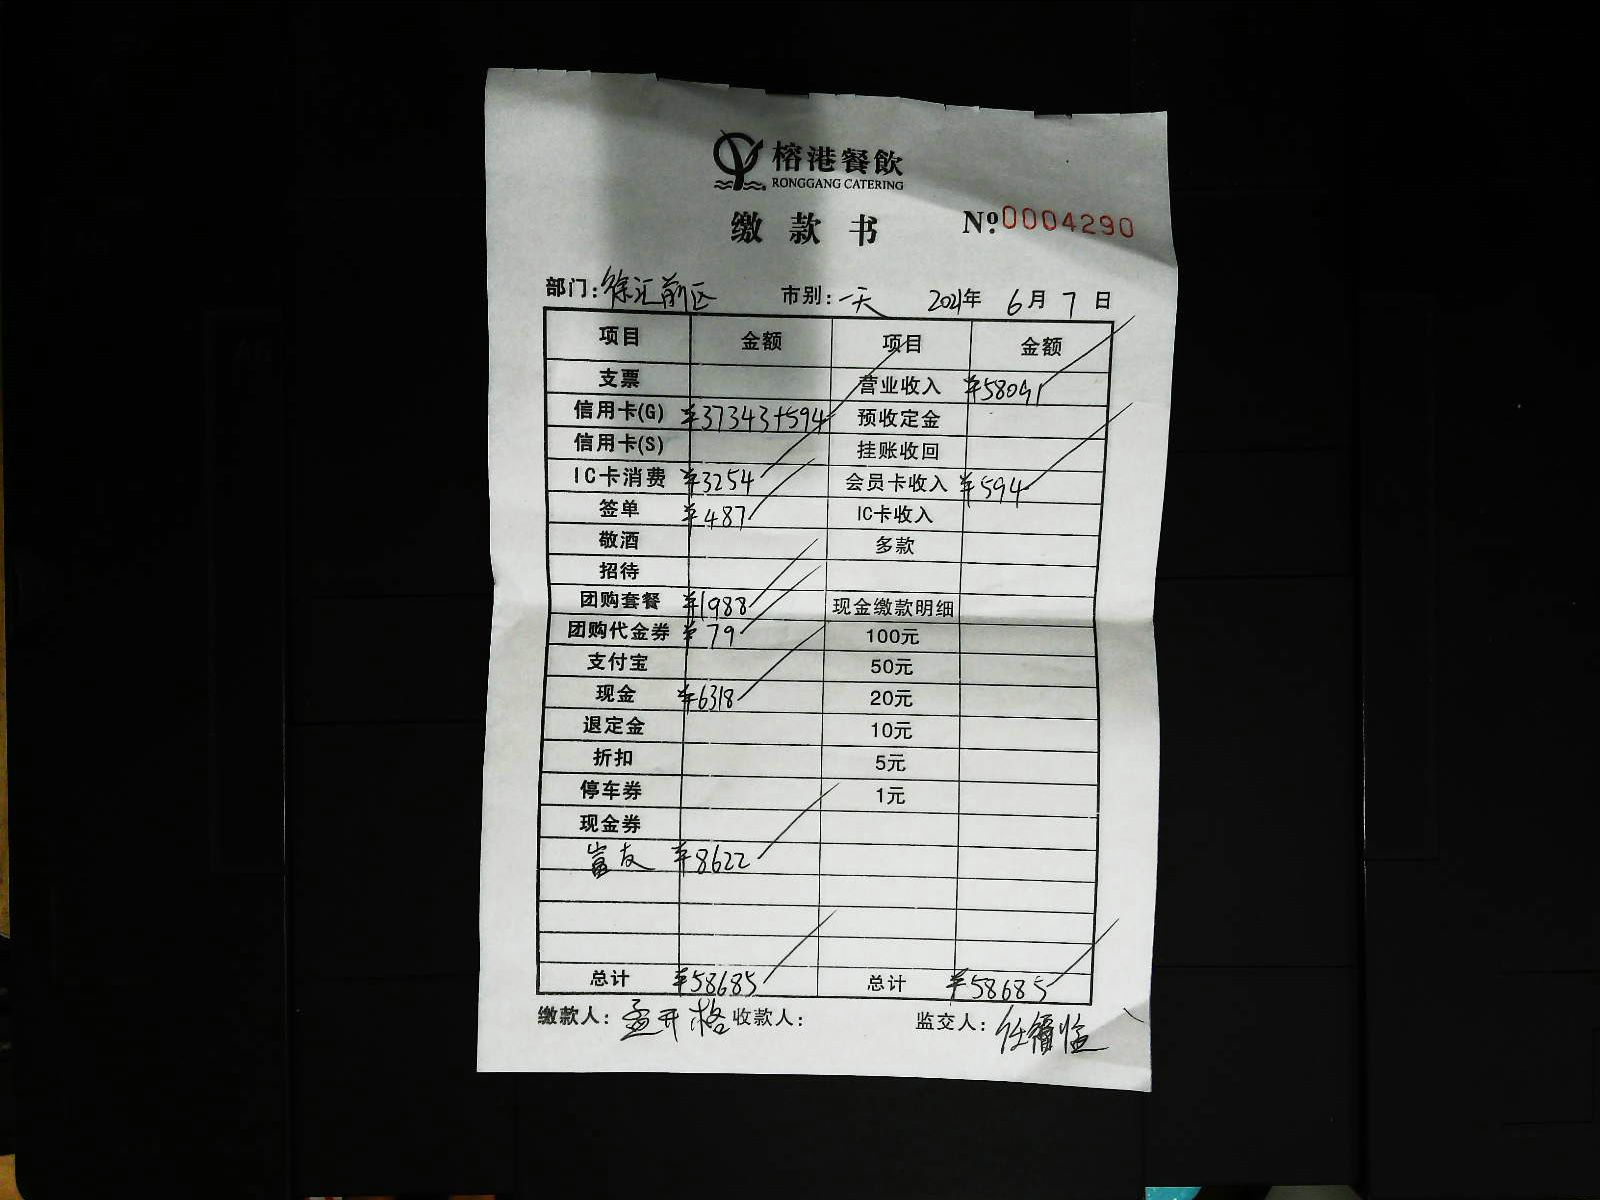 榕港餐飲
RONGGANG CATERING
缴款书 №0004290
部门:徐汇前区 市别:一天 2021年 6月 7日
项目 金额 项目 金额
支票 营业收入 ¥58091
信用卡(G) ¥37343+594 预收定金
信用卡(S) 挂账收回
IC卡消费 ¥3254 会员卡收入 ¥594
签单 ¥487 IC卡收入
敬酒 多款
招待
团购套餐 ¥1988 现金缴款明细
团购代金券 ¥79 100元
支付宝 50元
现金 ¥6318 20元
退定金 10元
折扣 5元
停车券 1元
现金券
富友 ¥8622
总计 ¥58685 总计 ¥58685
缴款人: 孟开格 收款人: 监交人: 任福临